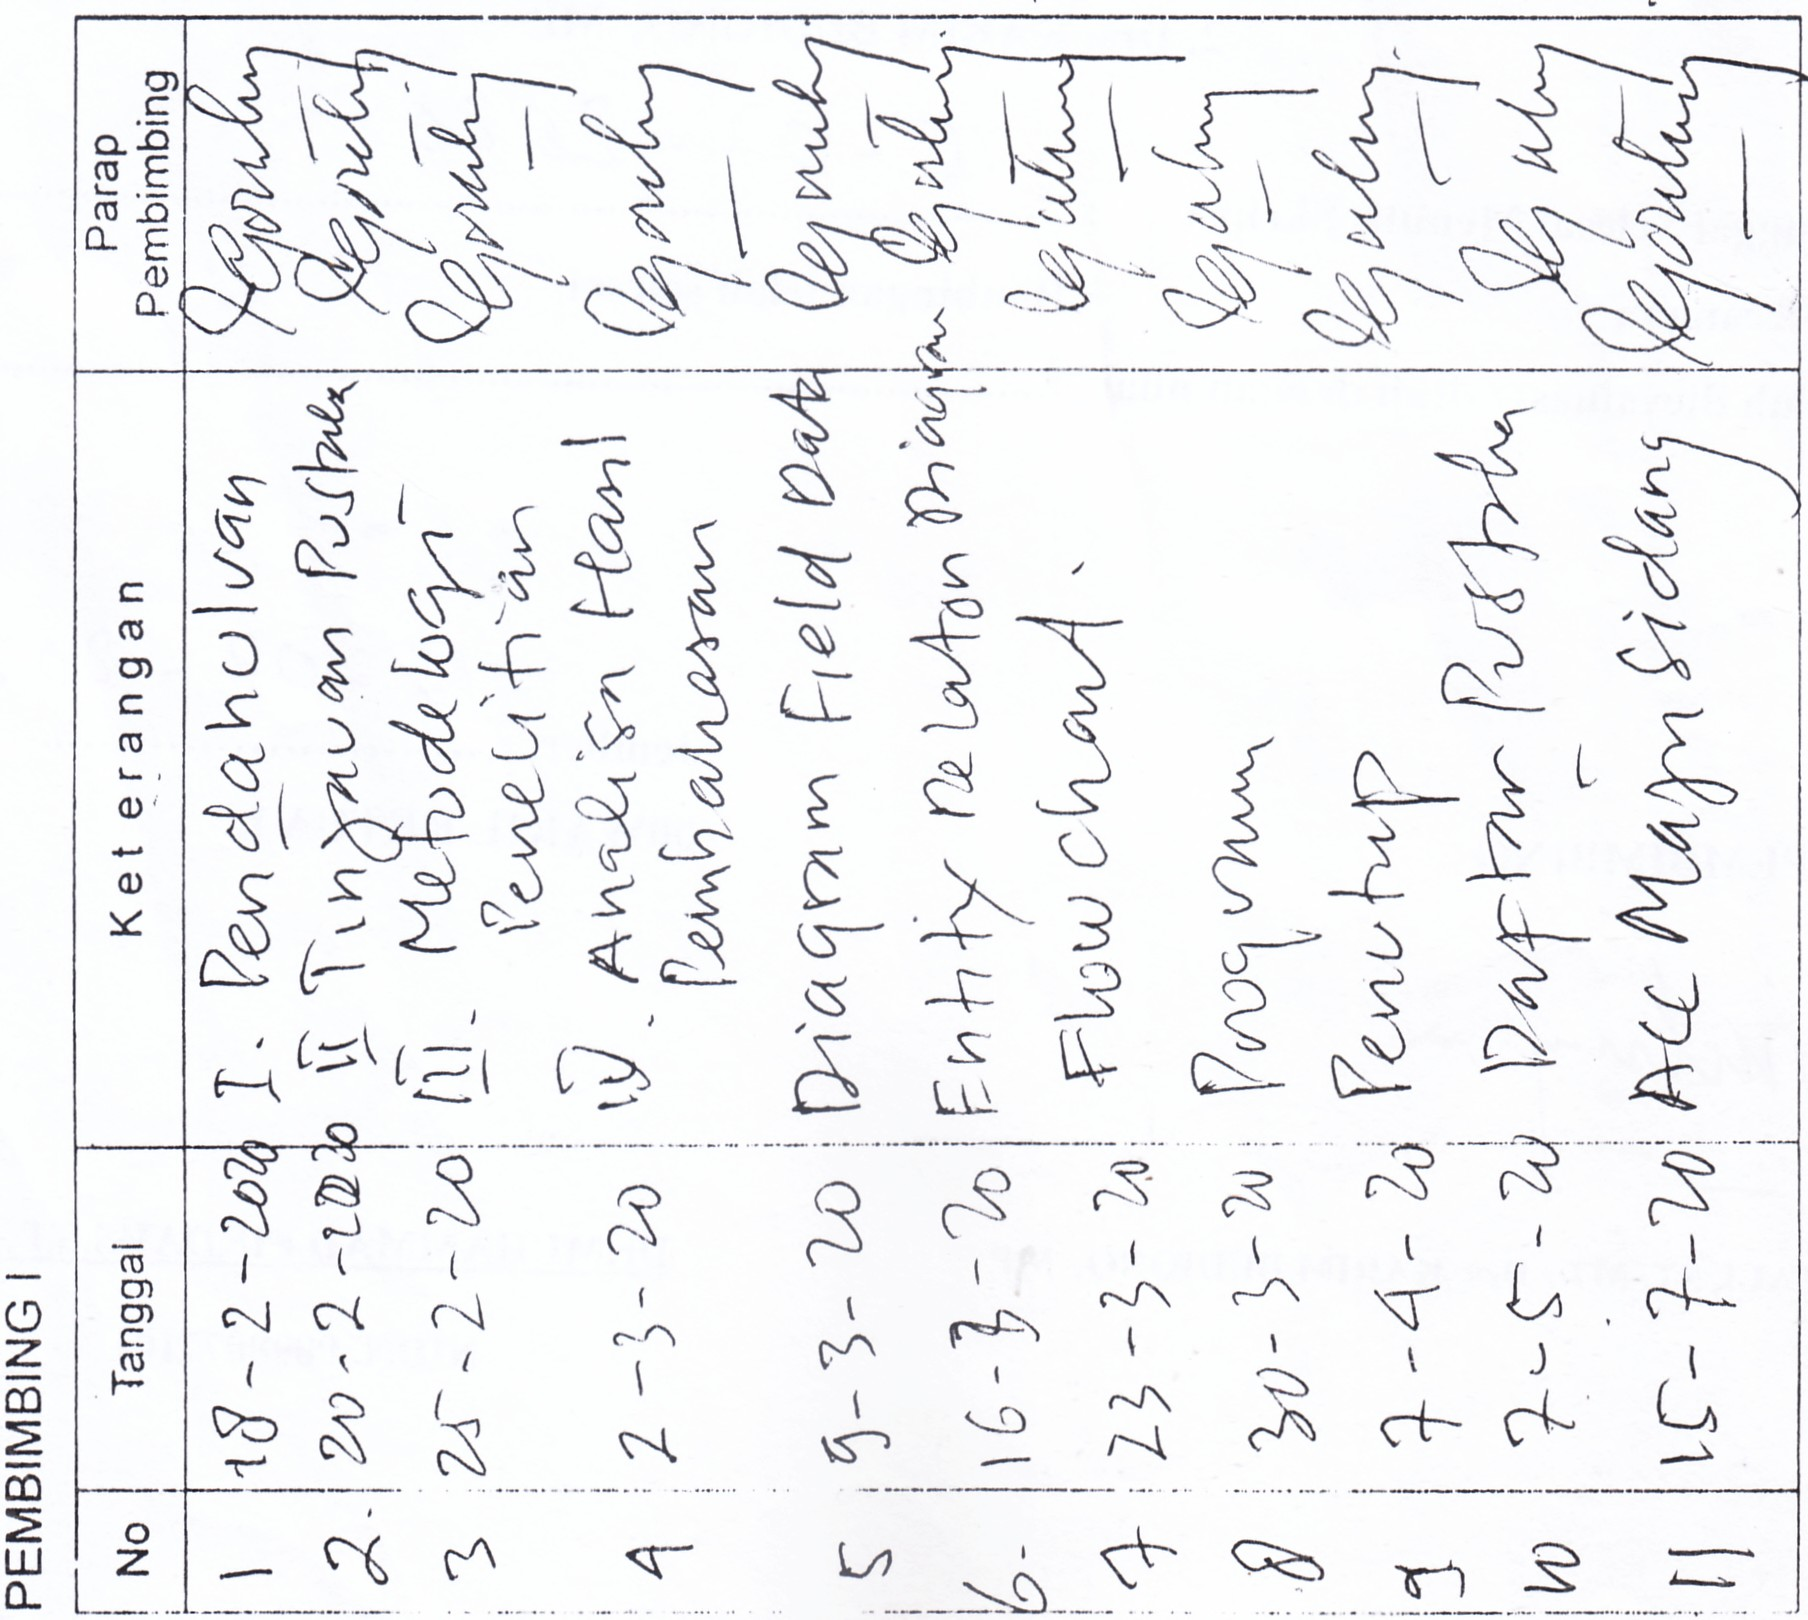 PEMBIMBING I
No Tanggal Keterangan Parap Pembimbing
1 18-2-2020 I. Pendahuluan
2. 20-2-2020 II Tinjauan Pustaka
3 25-2-20 III. Metodelogi
Penelitian
4 2-3-20 IV. Analisa Hasil
Pembahasan
5 9-3-20 Diagram Field Data
6. 16-3-20 Entity Relation Diagram
7 23-3-20 Flowchart.
8 30-3-20 Program
9 7-4-20 Penutup
10 7-5-20 Daftar Pustaka
11 15-7-20 ACC Sidang